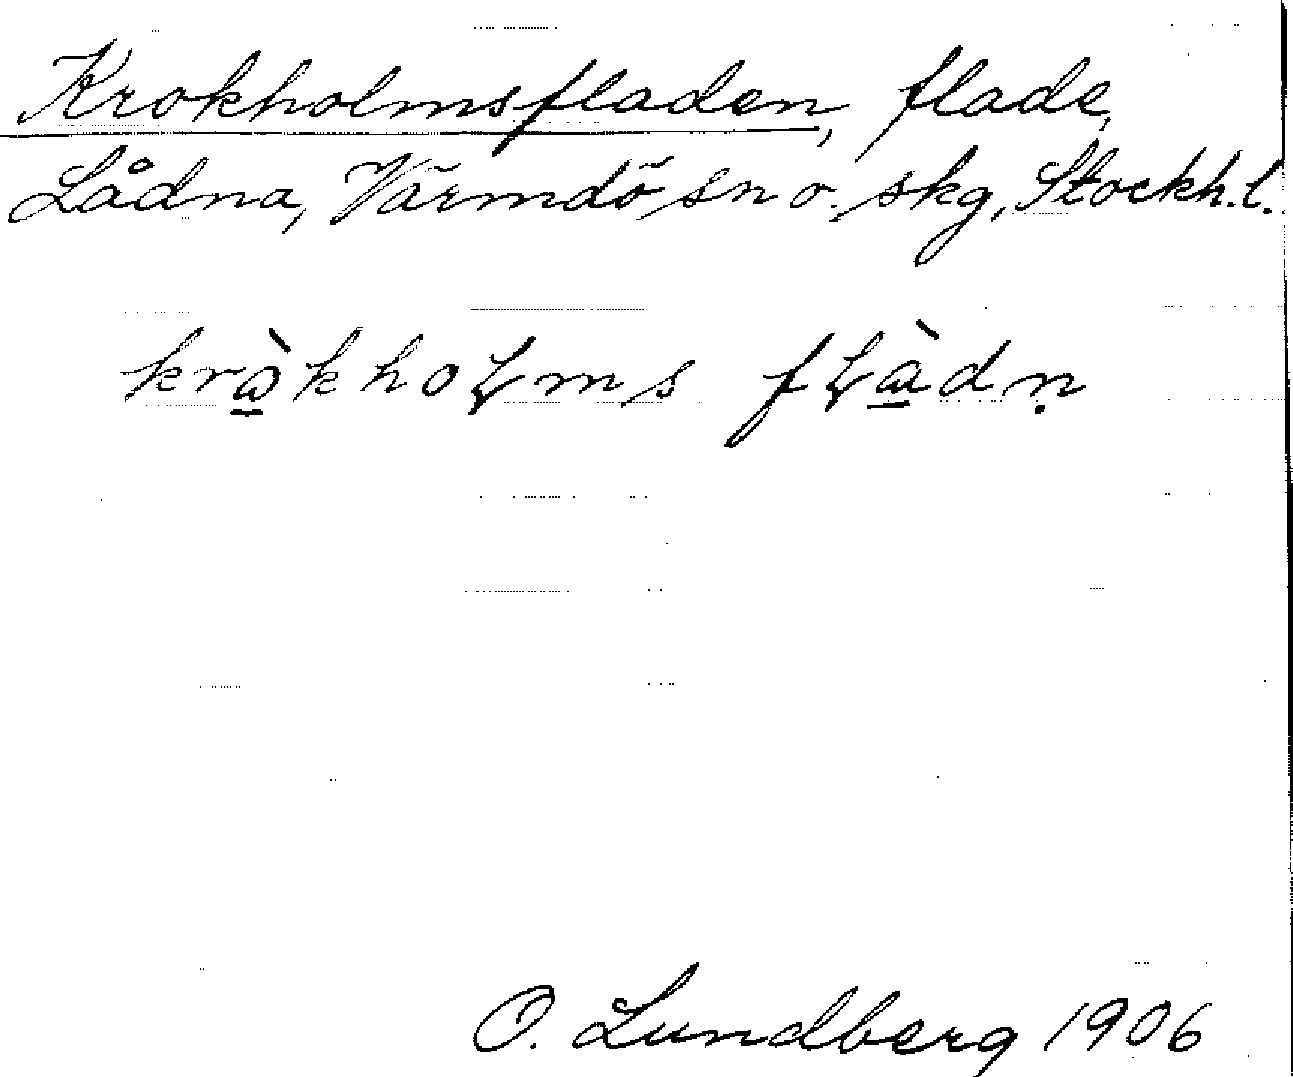 Krokholmsfladen, flade,
Lådna, Värmdö sn o. skg, Stockh. l.
krὼ̱khoLms fLà̱dṇ
O. Lundberg 1906